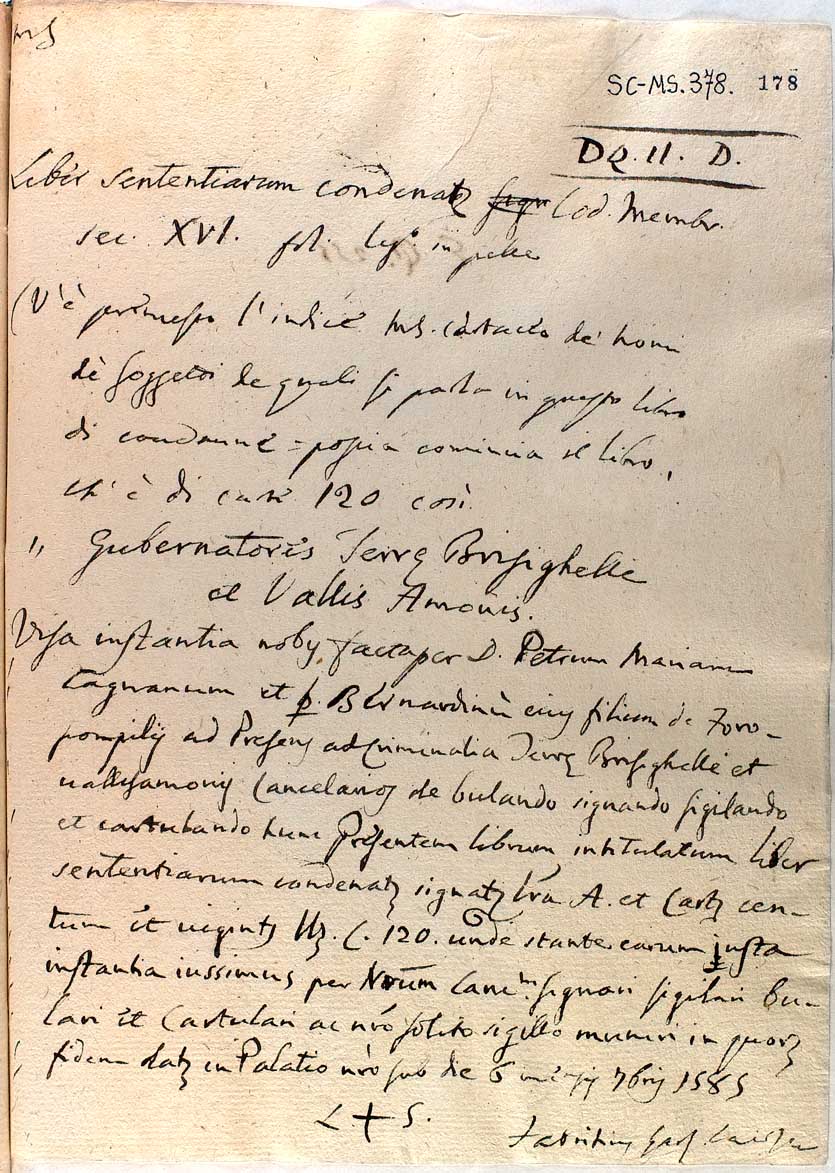 ms
SC-MS.378. 178
DQ. II. D.
Liber sententiarum condenatꝝ Cod. Membr.
sec. XVI. fol. leg.º in pelle
(V'è premesso l'indice ms. cartaceo de' nomi
de' soggetti de quali si parla in questo libro
di condanne = poscia comincia il libro,
ch' è di carte 120 così.
" Gubernatores Terrę Brisighelle
et Vallis Amonis.
Visa instantia nobis facta per D. Petrum Mariam
et p. Bernardinũ eius filium de Foro-
pompilij ad Presens ad criminalia Terrę Brisighelle et
vallisamonis Cancelarioꝝ de bulando signando sigilando
et cartulando hunc Presentem librum intitulatum liber
sententiarum condenatꝝ signatꝝ lrã A. et Cartꝝ cen-
tum et viginti C. 120. unde stante earum iusta
instantia iussimus per Nrũm Canc.m signari sigilari bu-
lari et Cartulari ac nrõ solito sigillo muniri in quorꝝ
fidem datꝝ in Palatio nrõ sub die 6 7bris 1585
L + S.